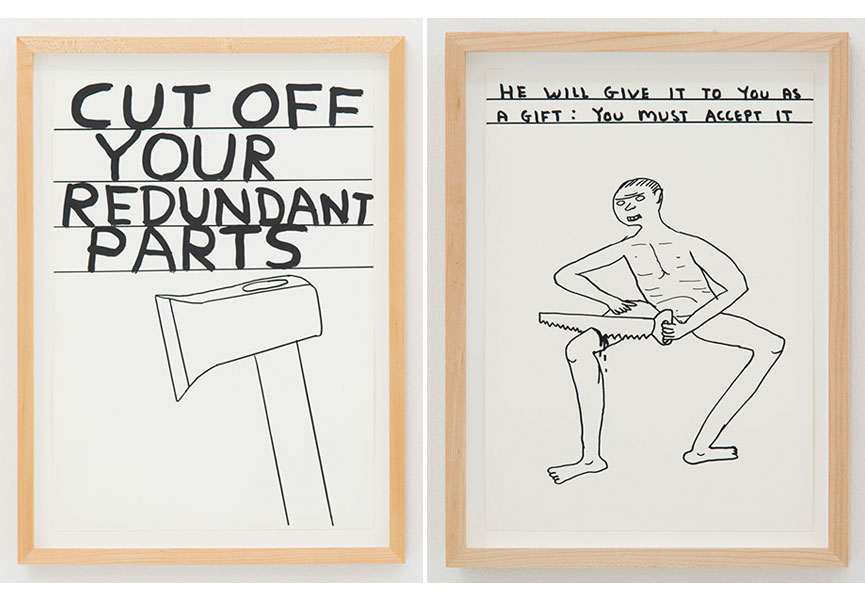 CUT OFF
YOUR
REDUNDANT
PARTS
HE WILL GIVE IT TO YOU AS
A GIFT: YOU MUST ACCEPT IT